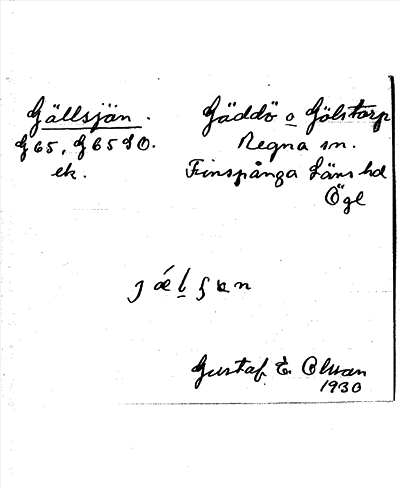 Gällsjön.
G65, G65SO.
ek.
Gäddö o Gölstorp
Regna sn.
Finspånga Läns hd
Ögl
Gustaf E. Olsson
1930